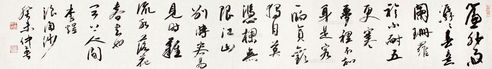 簾外雨
潺潺春意
闌珊羅衾
不耐五
更寒
夢裡不知
身是客
一晌貪歡
獨自莫
憑欄無
限江山
別時容易
見時難
流水落花
春去也
天上人間
李煜
浪淘沙
癸未仲春